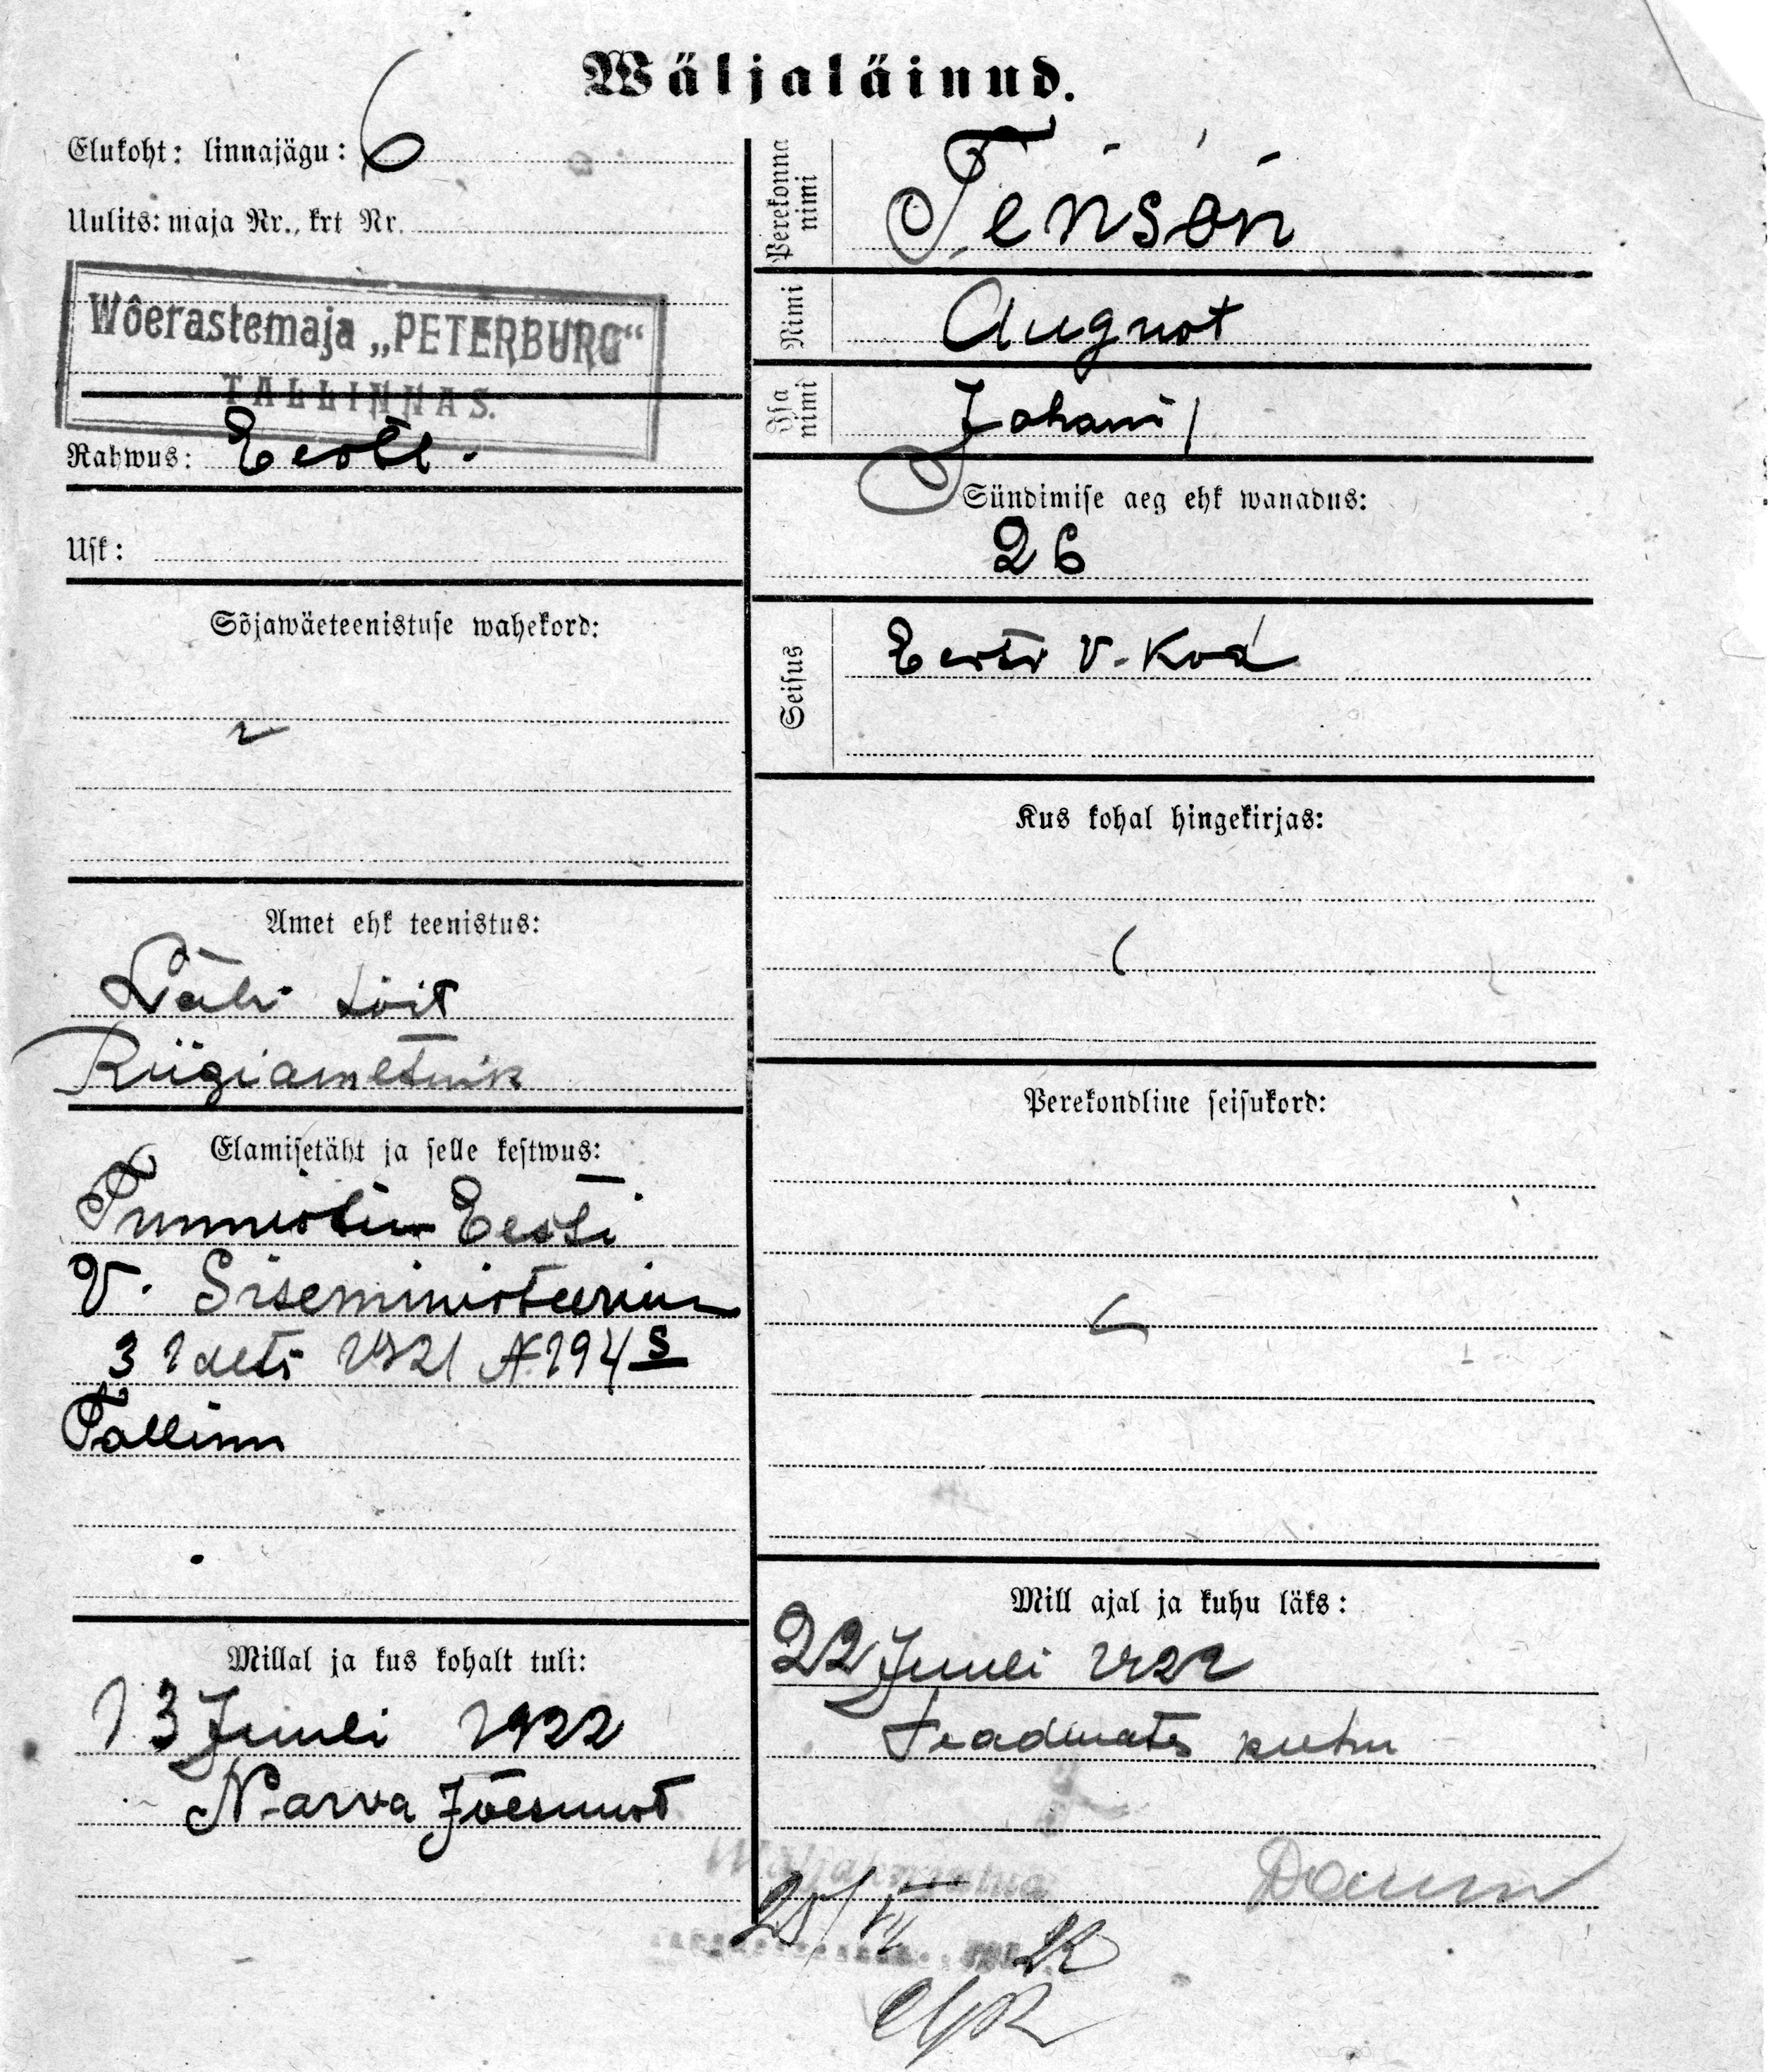 Wäljaläinud.
Elukoht: linnajägu: 6
Uulits: maja Nr., krt Nr.
Wôerastemaja „PETERBURG“
TALLINNAS.
Rahwus: Eesti.
Usk:
Sõjawäeteenistuse wahekord:
Amet ehk teenistus:
sõit
Riigiametnik
Elamisetäht ja selle kestwus:
Tunnistus Eesti
V. Siseministeerium
31 dets 1921 № 1945
Tallinn
Millal ja kus kohalt tuli:
13 Juuli 1922
Narva Jõesuust
Perekonna nimi Tenson
Nimi August
Isa nimi Johani
Sündimise aeg ehk wanadus:
26
Seisus Eesti V. Kod
Kus kohal hingekirjas:
Perekondline seisukord:
Mill ajal ja kuhu läks:
22 Juuli 1922
Teadmata kuhu
25/VII 22